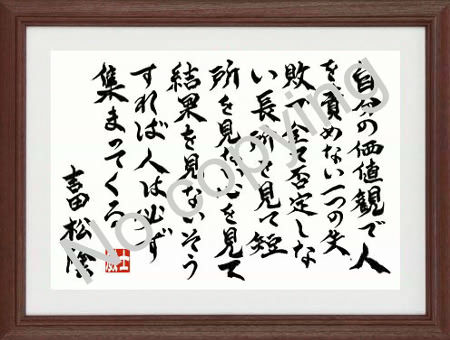 自分の価値観で人
を責めない一つの失
敗で全て否定しな
い長所を見て短
所を見ない心を見て
結果を見ないそう
すれば人は必ず
集まってくる
吉田松陰
No copying